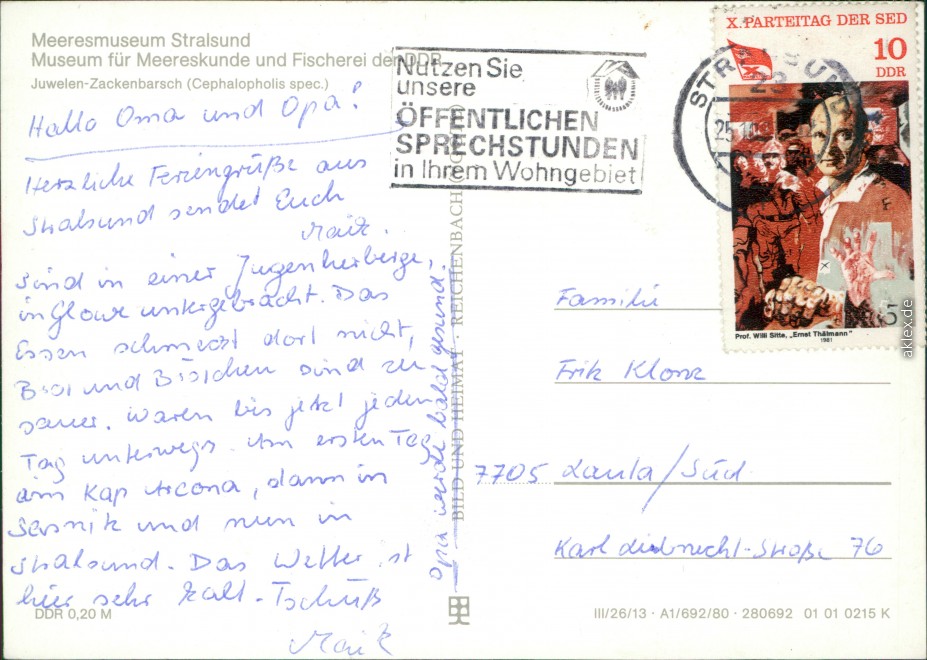 Meeresmuseum Stralsund
Museum für Meereskunde und Fischerei der DDR
Juwelen-Zackenbarsch (Cephalopholis spec.)
Hallo Oma und Opa!
Herzliche Feriengrüße aus
Stralsund sendet Euch
Maik.
Sind in einer Jugenherberge,
in Glowe untergebracht. Das
Essen schmeckt dort nicht,
Brot und Brötchen sind zu
sauer. Waren bis jetzt jeden
Tag unterwegs. Am ersten Tag
am Kap Arcona, dann in
Sassnitz und nun in
Stralsund. Das Wetter ist
hier sehr kalt. Tschüß
Maik
Opa werde bald gesund.
DDR 0,20 M
BILD UND HEIMAT · REICHENBACH
Nutzen Sie
unsere
ÖFFENTLICHEN
SPRECHSTUNDEN
in Ihrem Wohngebiet
STRALSUND
X. PARTEITAG DER SED
10
DDR
Prof. Willi Sitte, „Ernst Thälmann"
1981
Familie
Fritz Klonz
7705 Lauta/Süd
Karl Liebknecht-Straße 76
III/26/13 · A1/692/80 · 280692 01 01 0215 K
aklex.de